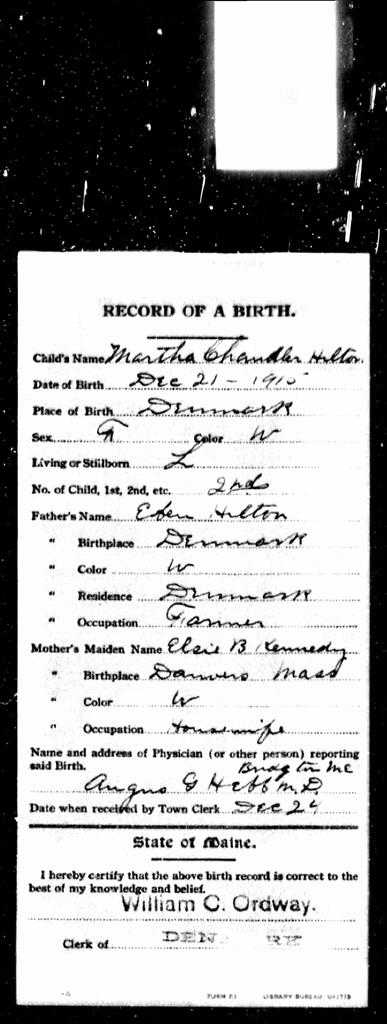 RECORD OF A BIRTH.
Child's Name Martha Chandler Hilton
Date of Birth Dec 21 - 1915
Place of Birth Denmark
Sex F Color W
Living or Stillborn L
No. of Child, 1st, 2nd, etc. 2nd
Father's Name Eben Hilton
" Birthplace Denmark
" Color W
" Residence Denmark
" Occupation Farmer
Mother's Maiden Name Elsie B Kennedy
" Birthplace Danvers Mass
" Color W
" Occupation Housewife
Name and address of Physician (or other person) reporting
said Birth. Bridgton Me
Angus G Hebb M.D.
Date when received by Town Clerk Dec 24
State of Maine.
I hereby certify that the above birth record is correct to the
best of my knowledge and belief.
William C. Ordway.
Clerk of DEN RK
LIBRARY BUREAU